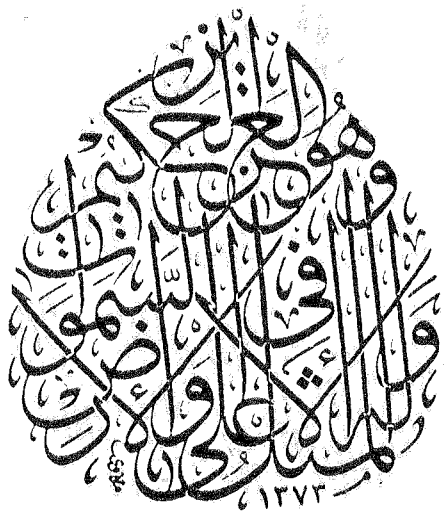 وله المثل الأعلى
في السموات والأرض
وهو العزيز الحكيم
١٣٧٣